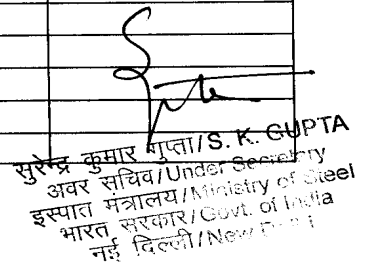 सुरेन्द्र कुमार गुप्ता/S. K. GUPTA
अवर सचिव/Under Secretary
इस्पात मंत्रालय/Ministry of Steel
भारत सरकार/Govt. of India
नई दिल्ली/New Delhi